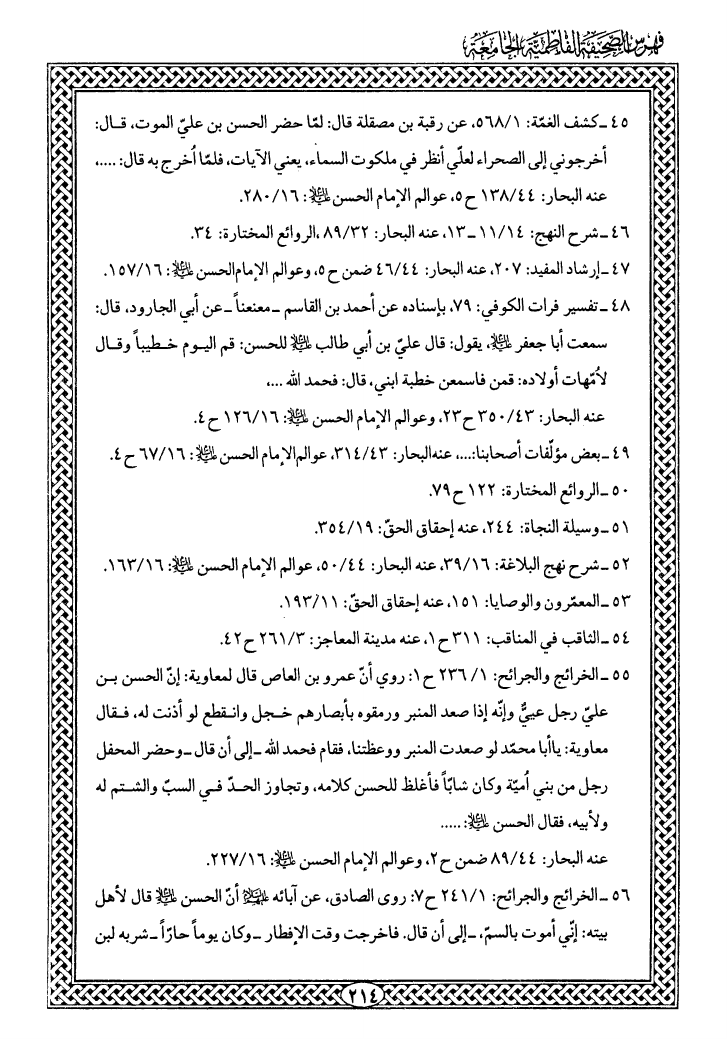 فهرس الصحيفة الفاطمية الجامعة
٤٥ ـ كشف الغمّة: ٥٦٨/١، عن رقبة بن مصقلة قال: لمّا حضر الحسن بن عليّ الموت، قـال:
أخرجوني إلى الصحراء لعلّي أنظر في ملكوت السماء، يعني الآيات، فلمّا اُخرج به قال: .....،
عنه البحار: ١٣٨/٤٤ ح٥، عوالم الإمام الحسن عليه السلام: ٢٨٠/١٦.
٤٦ ـ شرح النهج: ١١/١٤ ـ ١٣، عنه البحار: ٨٩/٣٢ ،الروائع المختارة: ٣٤.
٤٧ ـ إرشاد المفيد: ٢٠٧، عنه البحار: ٤٦/٤٤ ضمن ح٥، وعوالم الإمام الحسن عليه السلام: ١٥٧/١٦.
٤٨ ـ تفسير فرات الكوفي: ٧٩، بإسناده عن أحمد بن القاسم ـ معنعناً ـ عن أبي الجارود، قال:
سمعت أبا جعفر عليه السلام، يقول: قال عليّ بن أبي طالب عليه السلام للحسن: قم اليـوم خـطيباً وقـال
لاُمّهات أولاده: قمن فاسمعن خطبة ابني، قال: فحمد الله ...،
عنه البحار: ٣٥٠/٤٣ ح٢٣، وعوالم الإمام الحسن عليه السلام: ١٢٦/١٦ ح٤.
٤٩ ـ بعض مؤلّفات أصحابنا:...، عنه البحار: ٣١٤/٤٣، عوالم الإمام الحسن عليه السلام: ٦٧/١٦ ح٤.
٥٠ ـ الروائع المختارة: ١٢٢ ح٧٩.
٥١ ـ وسيلة النجاة: ٢٤٤، عنه إحقاق الحقّ: ٣٥٤/١٩.
٥٢ ـ شرح نهج البلاغة: ٣٩/١٦، عنه البحار: ٥٠/٤٤، عوالم الإمام الحسن عليه السلام: ١٦٣/١٦.
٥٣ ـ المعمّرون والوصايا: ١٥١، عنه إحقاق الحقّ: ١٩٣/١١.
٥٤ ـ الثاقب في المناقب: ٣١١ ح١، عنه مدينة المعاجز: ٢٦١/٣ ح٤٢.
٥٥ ـ الخرائج والجرائح: ١/ ٢٣٦ ح١: روي أنّ عمرو بن العاص قال لمعاوية: إنّ الحسن بـن
عليّ رجل عييٌّ وإنّه إذا صعد المنبر ورمقوه بأبصارهم خـجل وانـقطع لو أذنت له، فـقال
معاوية: ياأبا محمّد لو صعدت المنبر ووعظتنا، فقام فحمد الله ـ إلى أن قال ـ وحضر المحفل
رجل من بني اُميّة وكان شابّاً فأغلظ للحسن كلامه، وتجاوز الحـدّ فـي السبّ والشـتم له
ولأبيه، فقال الحسن عليه السلام: .....
عنه البحار: ٨٩/٤٤ ضمن ح٢، وعوالم الإمام الحسن عليه السلام: ٢٢٧/١٦.
٥٦ ـ الخرائج والجرائح: ٢٤١/١ ح٧: روى الصادق، عن آبائه عليهم السلام أنّ الحسن عليه السلام قال لأهل
بيته: إنّي أموت بالسمّ، ـ إلى أن قال. فاخرجت وقت الإفطار ـ وكان يوماً حارّاً ـ شربه لبن
٢١٤